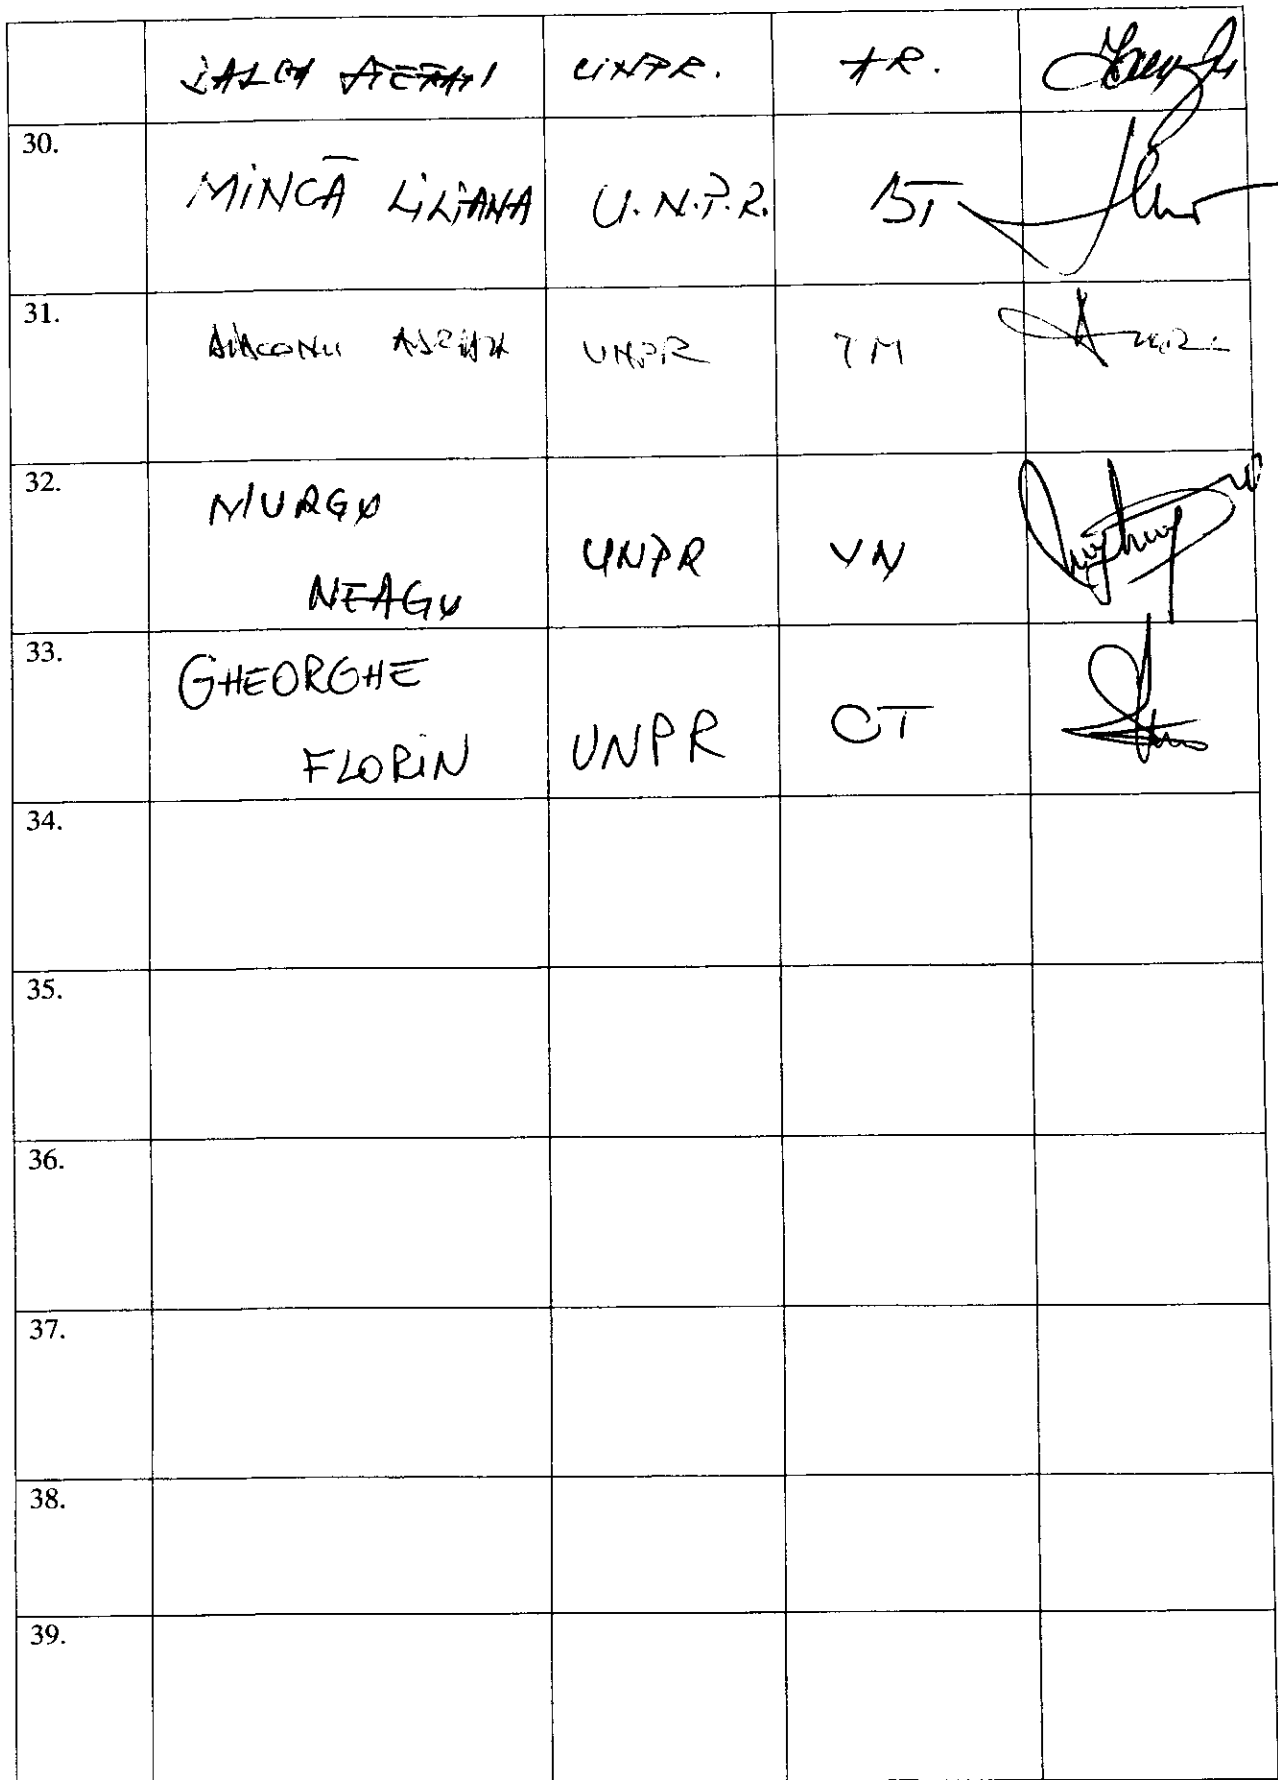 UNPR.
30.
MINCĂ LILIANA U.N.P.R. BT
31.
DIACONU UNPR TM
32.
MURGU
NEAGU UNPR VN
33.
GHEORGHE
FLORIN UNPR CT
34.
35.
36.
37.
38.
39.